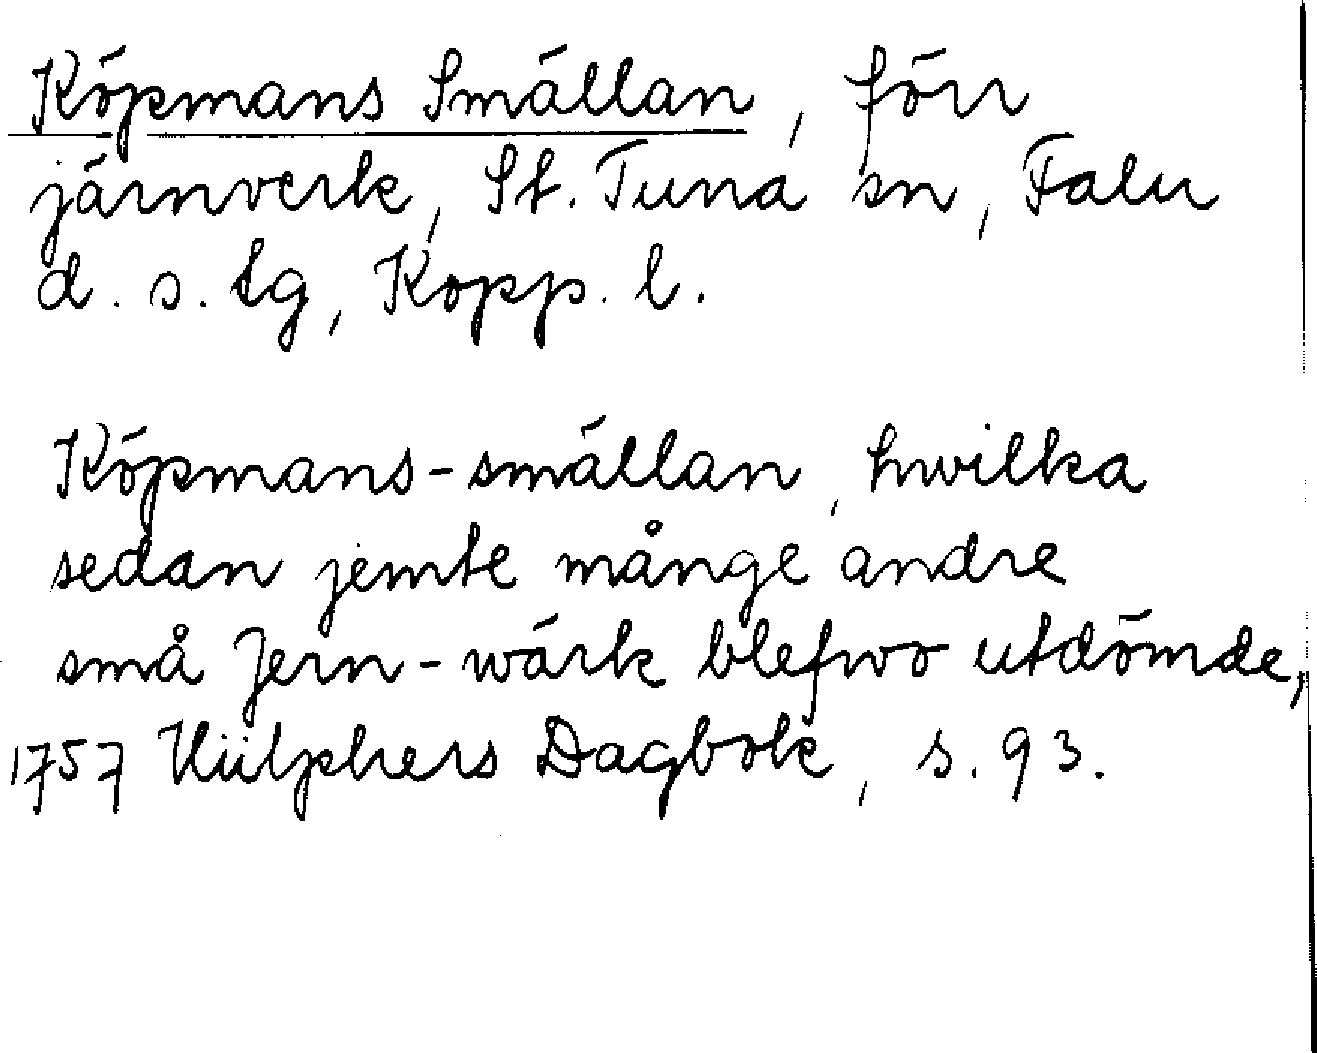 Köpmans Smällan, förr
järnverk, St. Tuna sn, Falu
d. s. lg, Kopp. l.
Köpmans-smällan, hwilka
sedan jemte månge andre
små Jern-wärk blefwo utdömde,
1757 Hülphers Dagbok, s. 93.